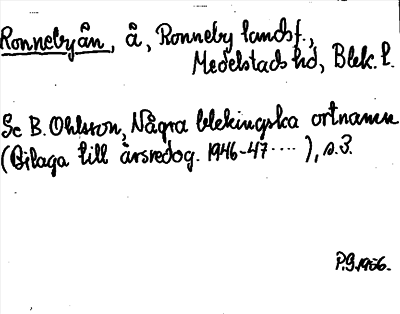 Ronnebyån, å, Ronneby landsf.,
Medelstads hd, Blek. l.
Se B. Ohlsson, Några blekingska ortnamn
(Bilaga till årsredog. 1946-47 ....), s. 3.
P.G. 1956.